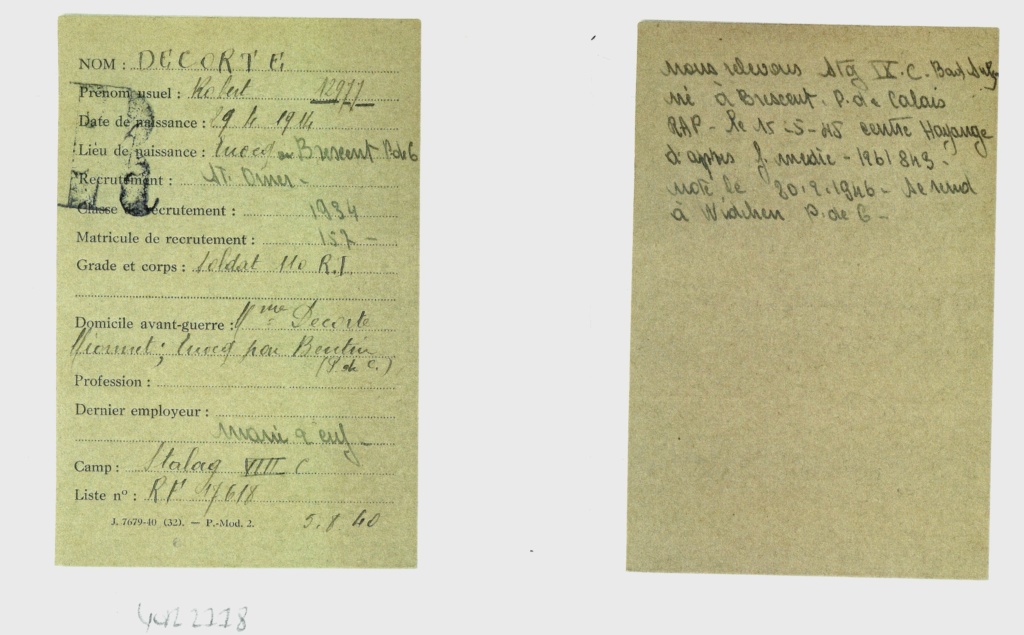 NOM : DECORTE
Prénom usuel : Robert 12977
Date de naissance : 29 4 1914
Lieu de naissance : ou Brescent P de C
Recrutement : St. Omer -
Classe de recrutement : 1934
Matricule de recrutement : 157 -
Grade et corps : Soldat 110 R.I.
Domicile avant-guerre : Mme Decorte
par
(P. de C.)
Profession :
Dernier employeur :
marié 2 enf -
Camp : Stalag VIIII C
Liste nº : RF 17618
J. 7679-40 (32). — P.-Mod. 2.
5.8 40
nous relevons Stg IX.C. Bad Sulz
né à Brescent. P. de Calais
RAP - le 15-5-45 centre Hayange
d'apres f. medic - 1961843 -
noté le 20.2.1946 - se rend
à P. de C -